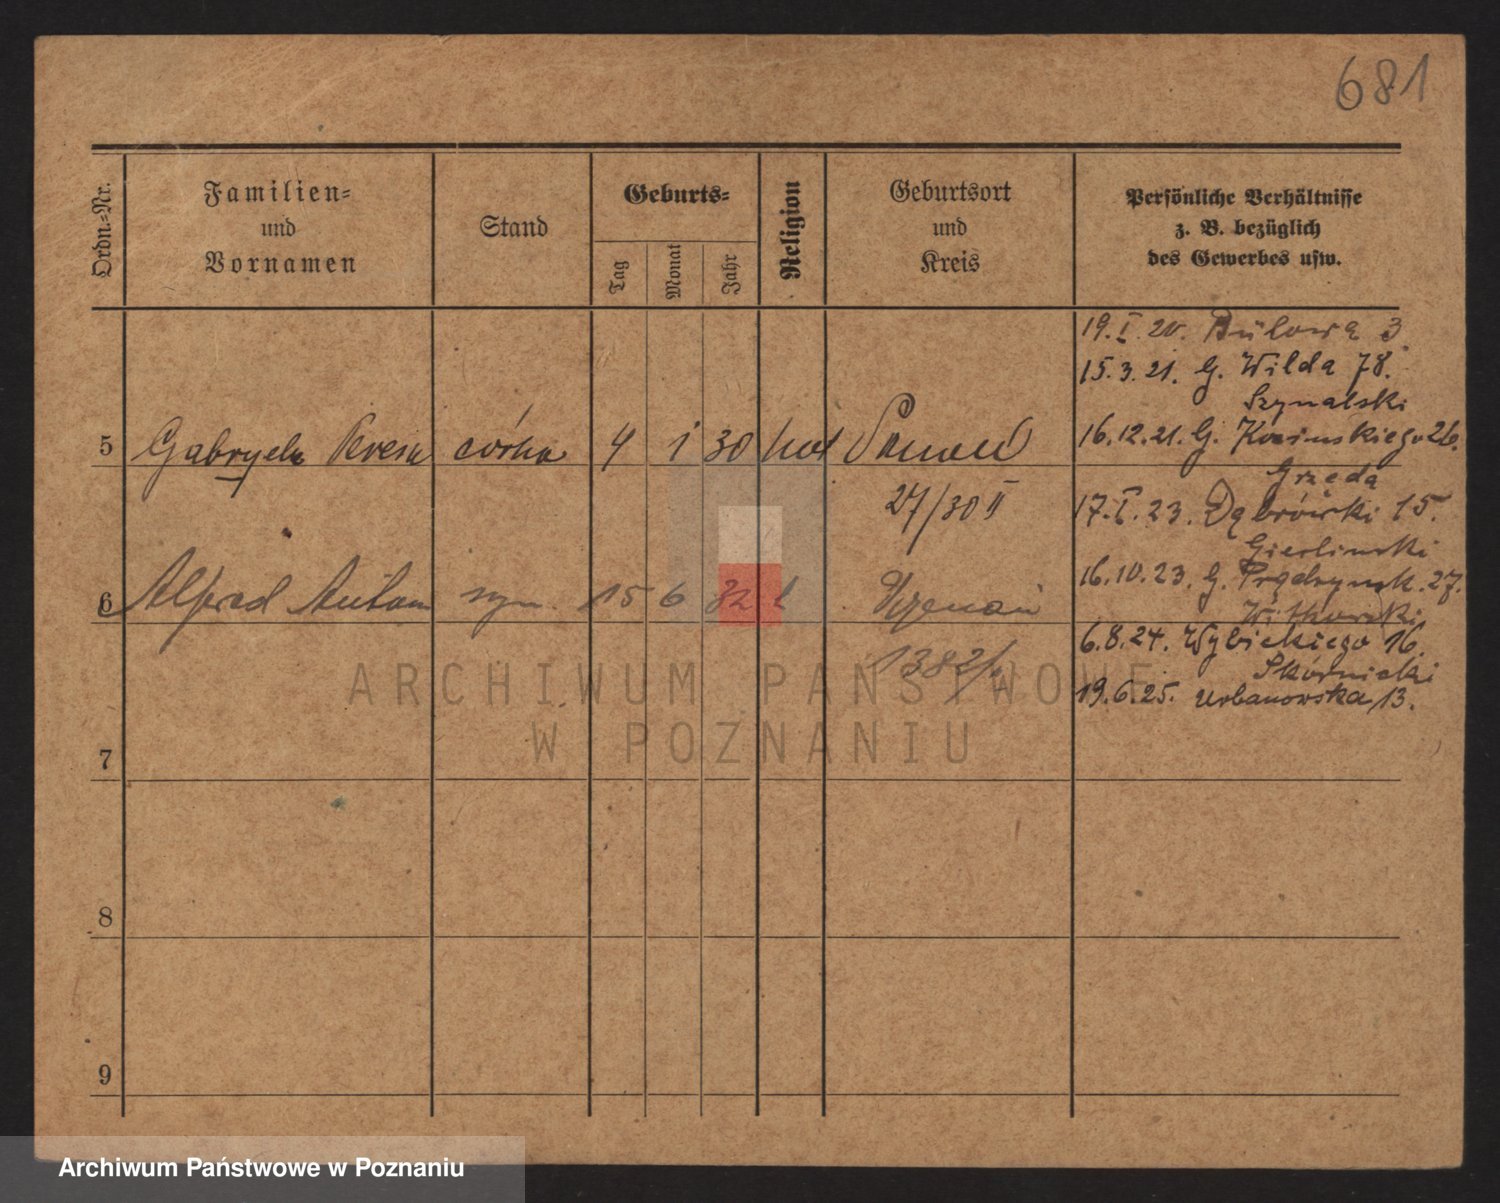 681
Ordn.-Nr.
Familien-
und
Vornamen
Stand
Geburts-
Tag
Monat
Jahr
Religion
Geburtsort
und
Kreis
Persönliche Verhältnisse
z. B. bezüglich
des Gewerbes usw.
19.I.20. Bülowa 3.
15.3.21. G. Wilda 78.
Szynalski
5 Gabryela Teresa córka 4 1 30 kat Poznań
16.12.21. G. Kosinskiego 26.
Grzęda
27/30 II
17.I.23. Dąbrówki 15.
Gierlinski
16.10.23. G. Prądzynsk. 27.
6 Alfred Antoni syn. 15 6 32 k Poznań
Witkowski
6.8.24. Wybickiego 16.
1382/
Skórnicki
19.6.25. Urbanowska 13.
7
8
9
ARCHIWUM PAŃSTWOWE
W POZNANIU
Archiwum Państwowe w Poznaniu